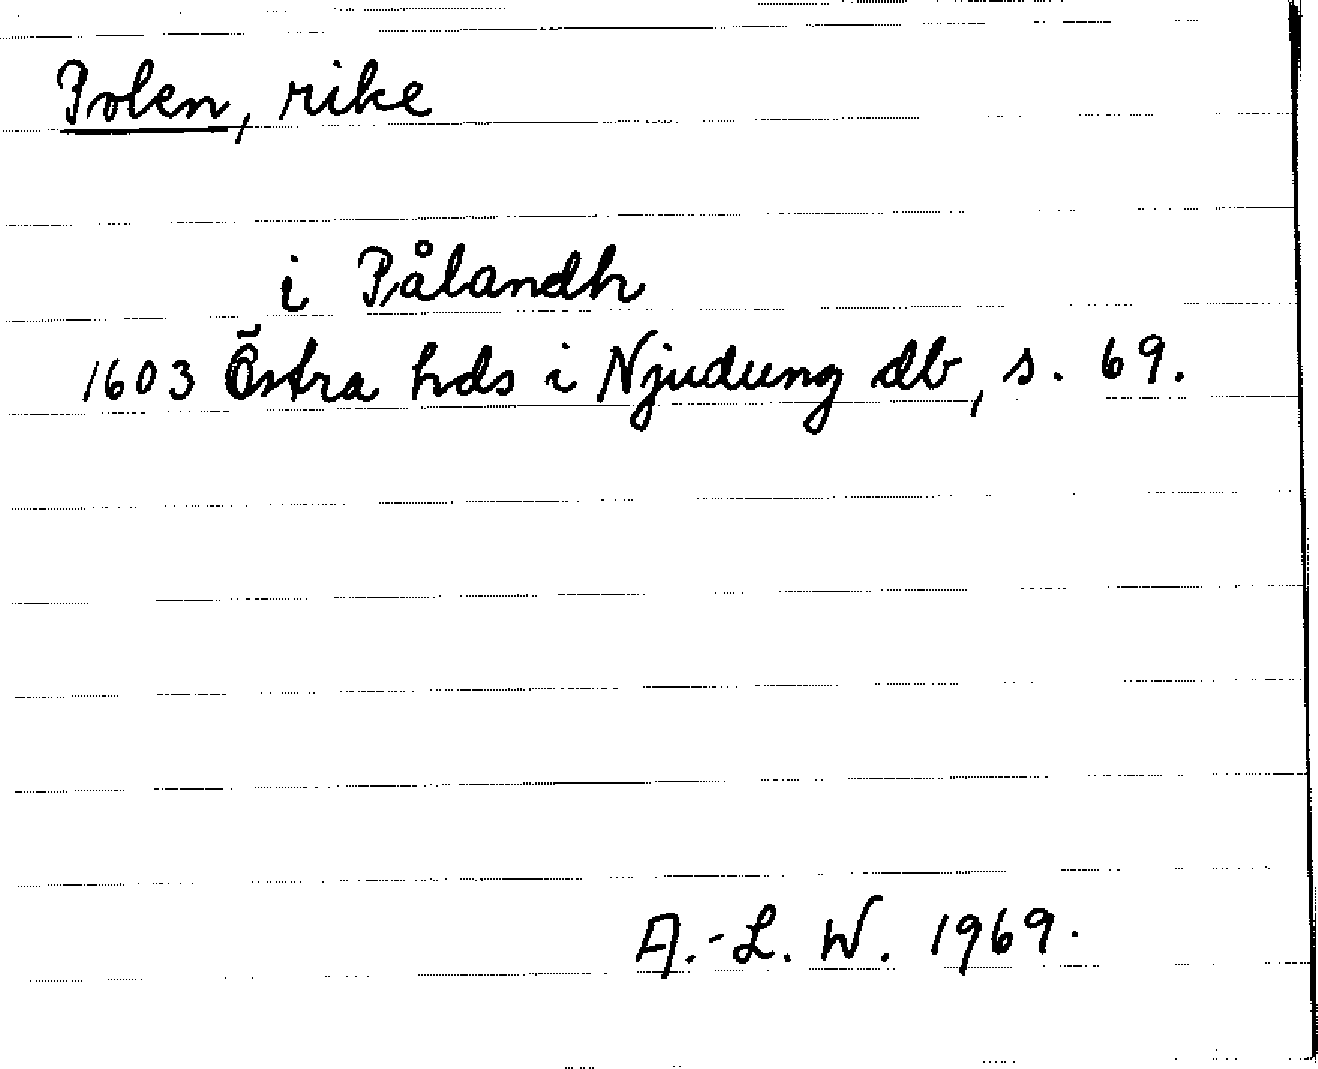 Polen, rike
i Pålandh
1603 Östra hds i Njudung db, s. 69.
A.-L. W. 1969.